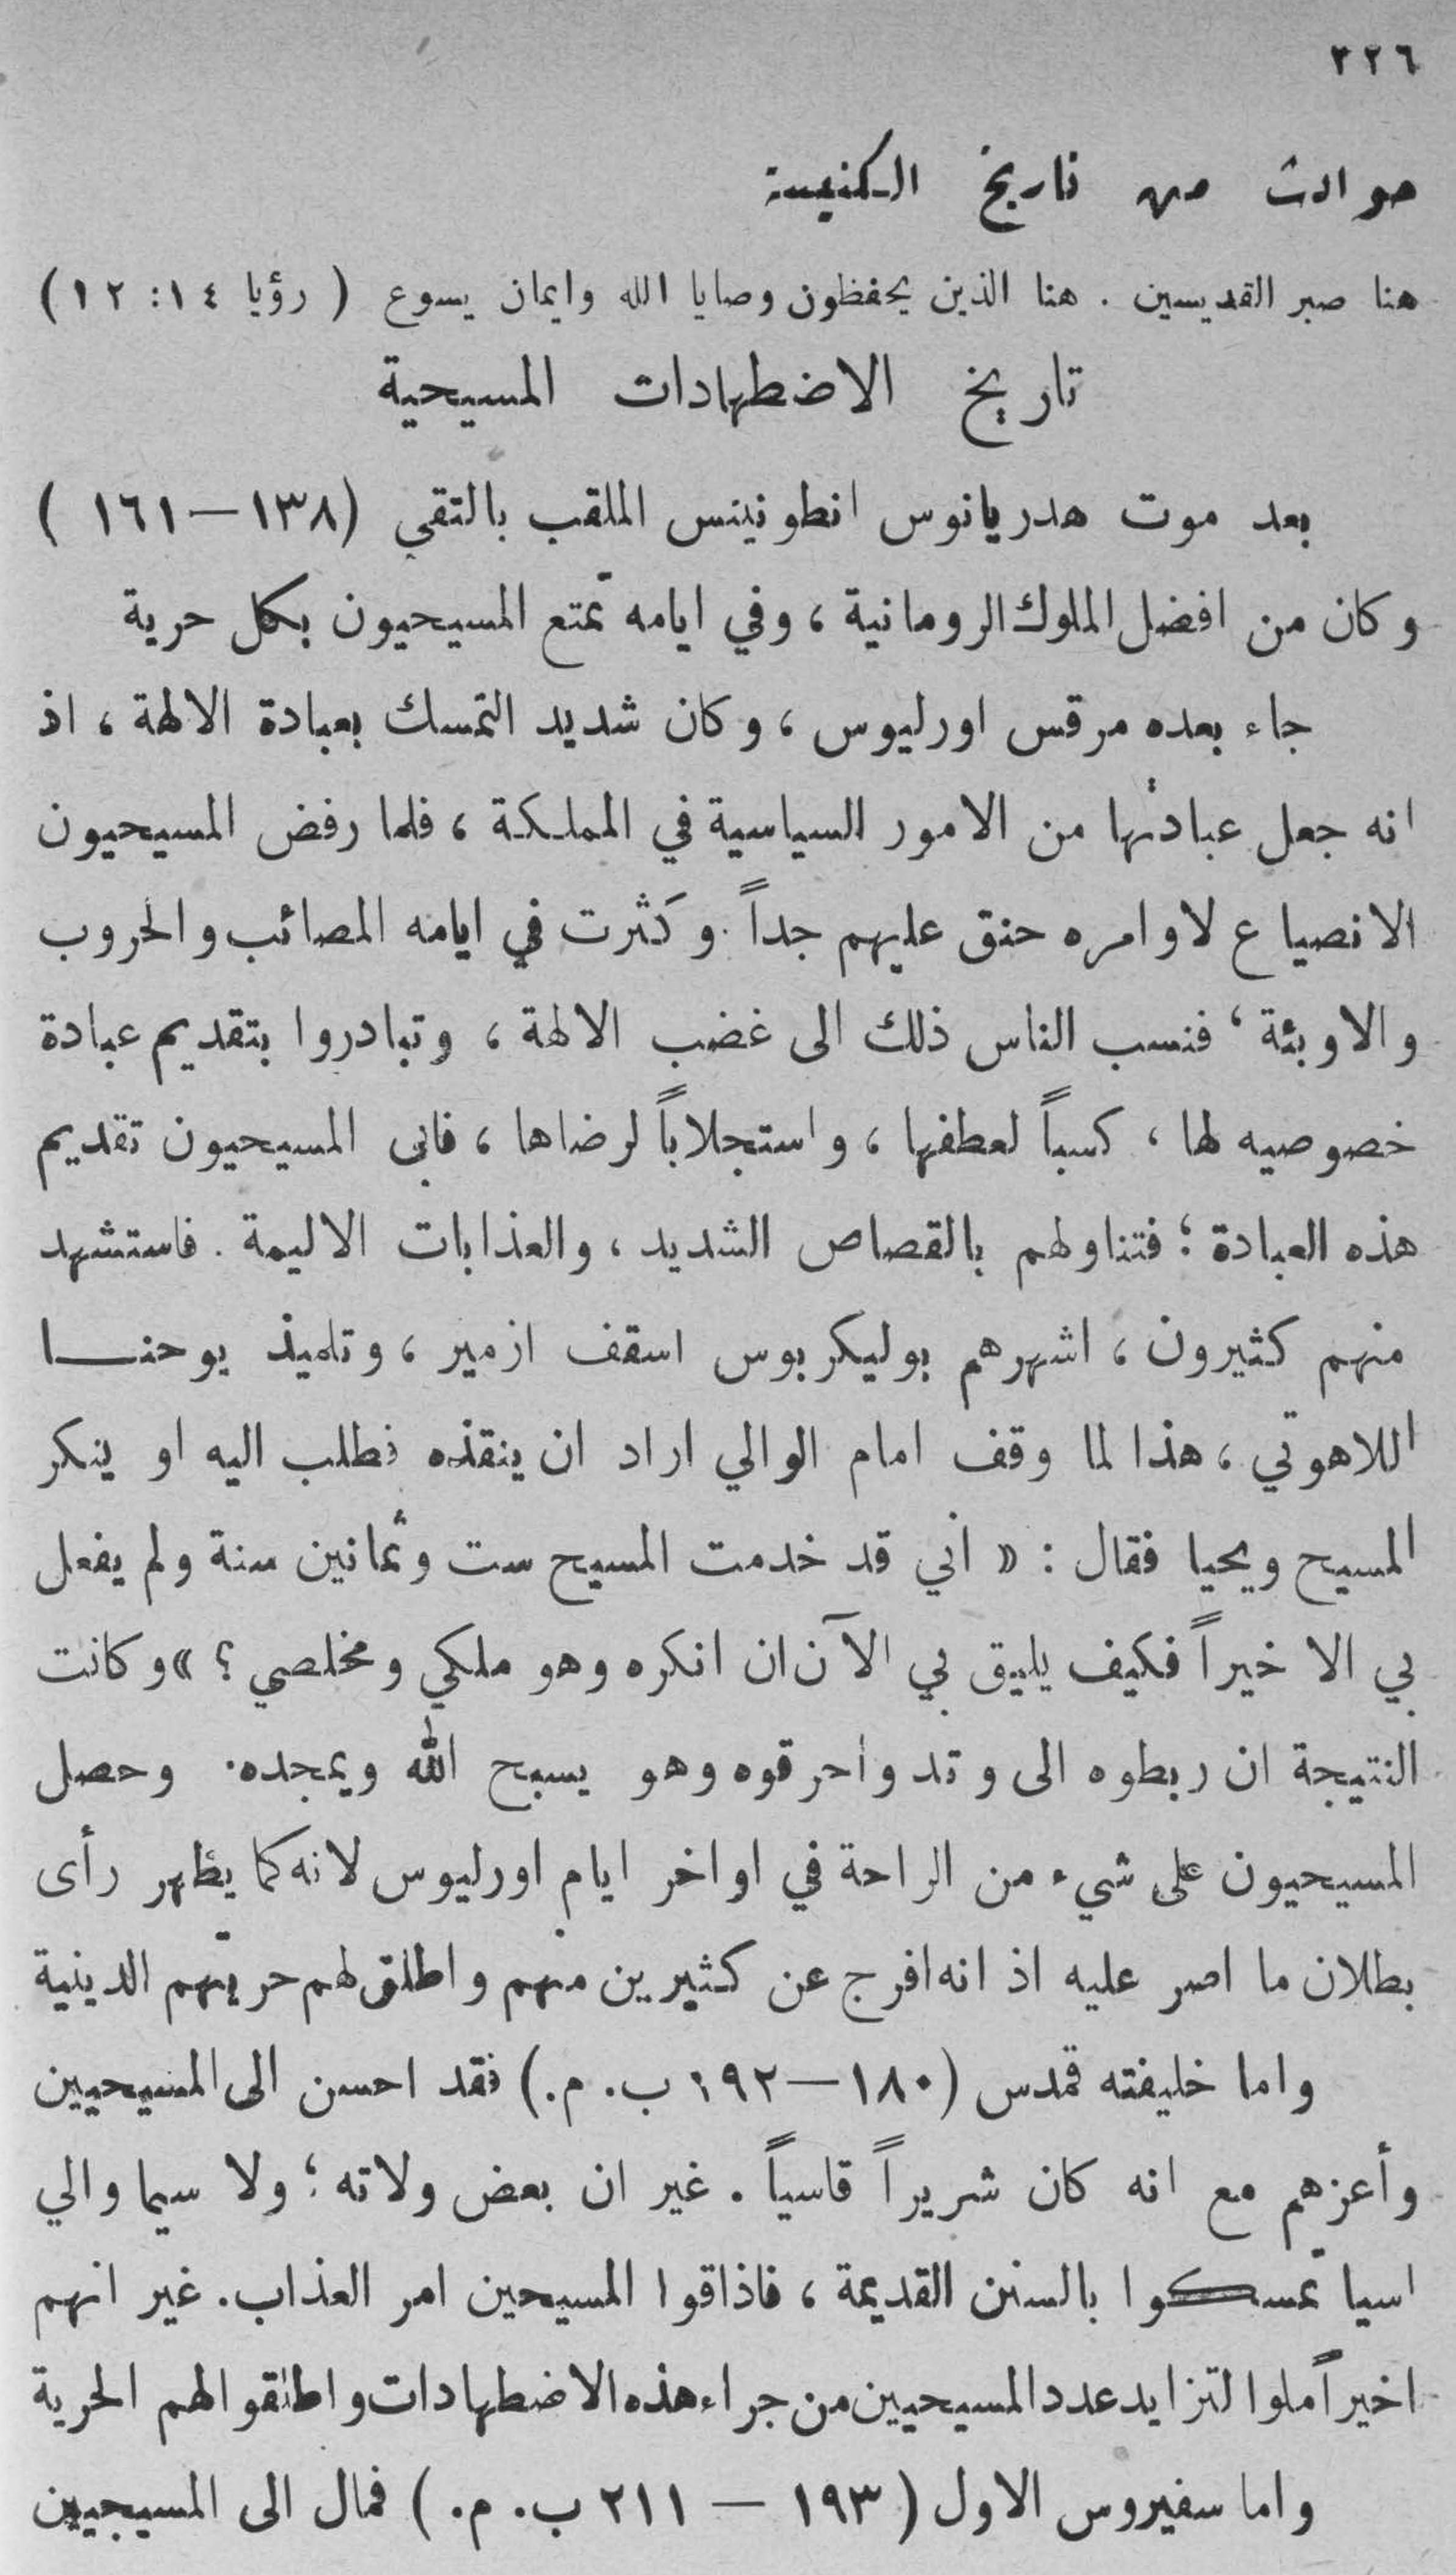 ٢٢٦
حوادث من تاريخ الكنيسة
هنا صبر القديسين . هنا الذين يحفظون وصايا الله وايمان يسوع ( رؤيا ١٤ : ١٢ )
تاريخ الاضطهادات المسيحية
بعد موت هدريانوس انطونينس الملقب بالتقي (١٣٨—١٦١ )
وكان من افضل الملوك الرومانية ، وفي ايامه تمتع المسيحيون بكل حرية
جاء بعده مرقس اورليوس ، وكان شديد التمسك بعبادة الالهة ، اذ
انه جعل عبادتها من الامور السياسية في المملكة ، فلما رفض المسيحيون
الانصياع لاوامره حنق عليهم جداً . وكثرت في ايامه المصائب والحروب
والاوبئة ، فنسب الناس ذلك الى غضب الالهة ، وتبادروا بتقديم عبادة
خصوصيه لها ، كسباً لعطفها ، واستجلاباً لرضاها ، فابى المسيحيون تقديم
هذه العبادة ؛ فتناولهم بالقصاص الشديد ، والعذابات الاليمة . فاستشهد
منهم كثيرون ، اشهرهم بوليكربوس اسقف ازمير ، وتلميذ يوحنـــا
اللاهوتي ، هذا لما وقف امام الوالي اراد ان ينقذه فطلب اليه او ينكر
المسيح ويحيا فقال : « اني قد خدمت المسيح ست وثمانين سنة ولم يفعل
بي الا خيراً فكيف يليق بي الآن ان انكره وهو ملكي ومخلصي ؟ » وكانت
النتيجة ان ربطوه الى وتد واحرقوه وهو يسبح الله ويمجده . وحصل
المسيحيون على شيء من الراحة في اواخر ايام اورليوس لانه كما يظهر رأى
بطلان ما اصر عليه اذ انه افرج عن كثيرين منهم واطلق لهم حريتهم الدينية
واما خليفته قمدس (١٨٠—١٩٢ ب. م.) فقد احسن الى المسيحيين
وأعزهم مع انه كان شريراً قاسياً . غير ان بعض ولاته ؛ ولا سيما والي
اسيا تمسكوا بالسنن القديمة ، فاذاقوا المسيحين امر العذاب. غير انهم
اخيراً ملوا لتزايد عدد المسيحيين من جراء هذه الاضطهادات واطلقوا لهم الحرية
واما سفيروس الاول ( ١٩٣ — ٢١١ ب. م. ) فمال الى المسيحيين